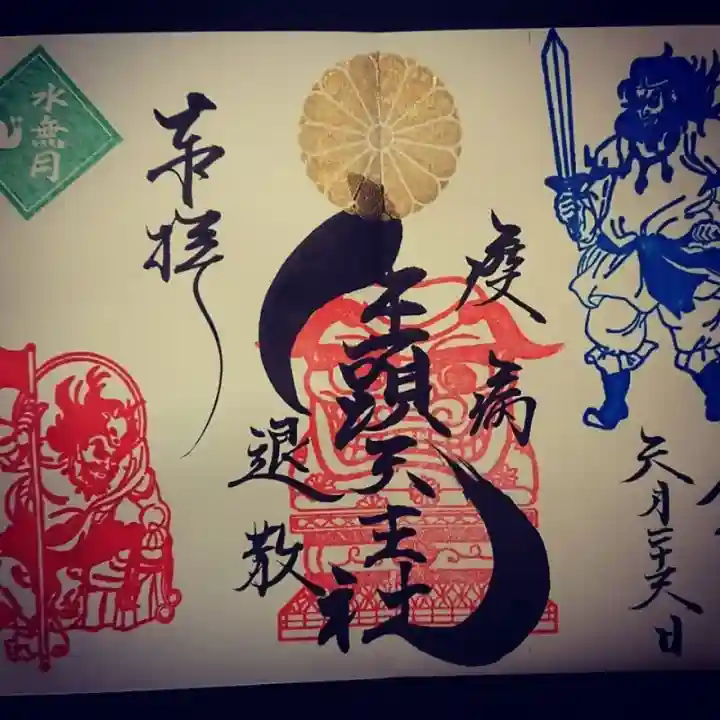 疫病
退散
牛頭天王社
奉拝
六月二十六日
水無月